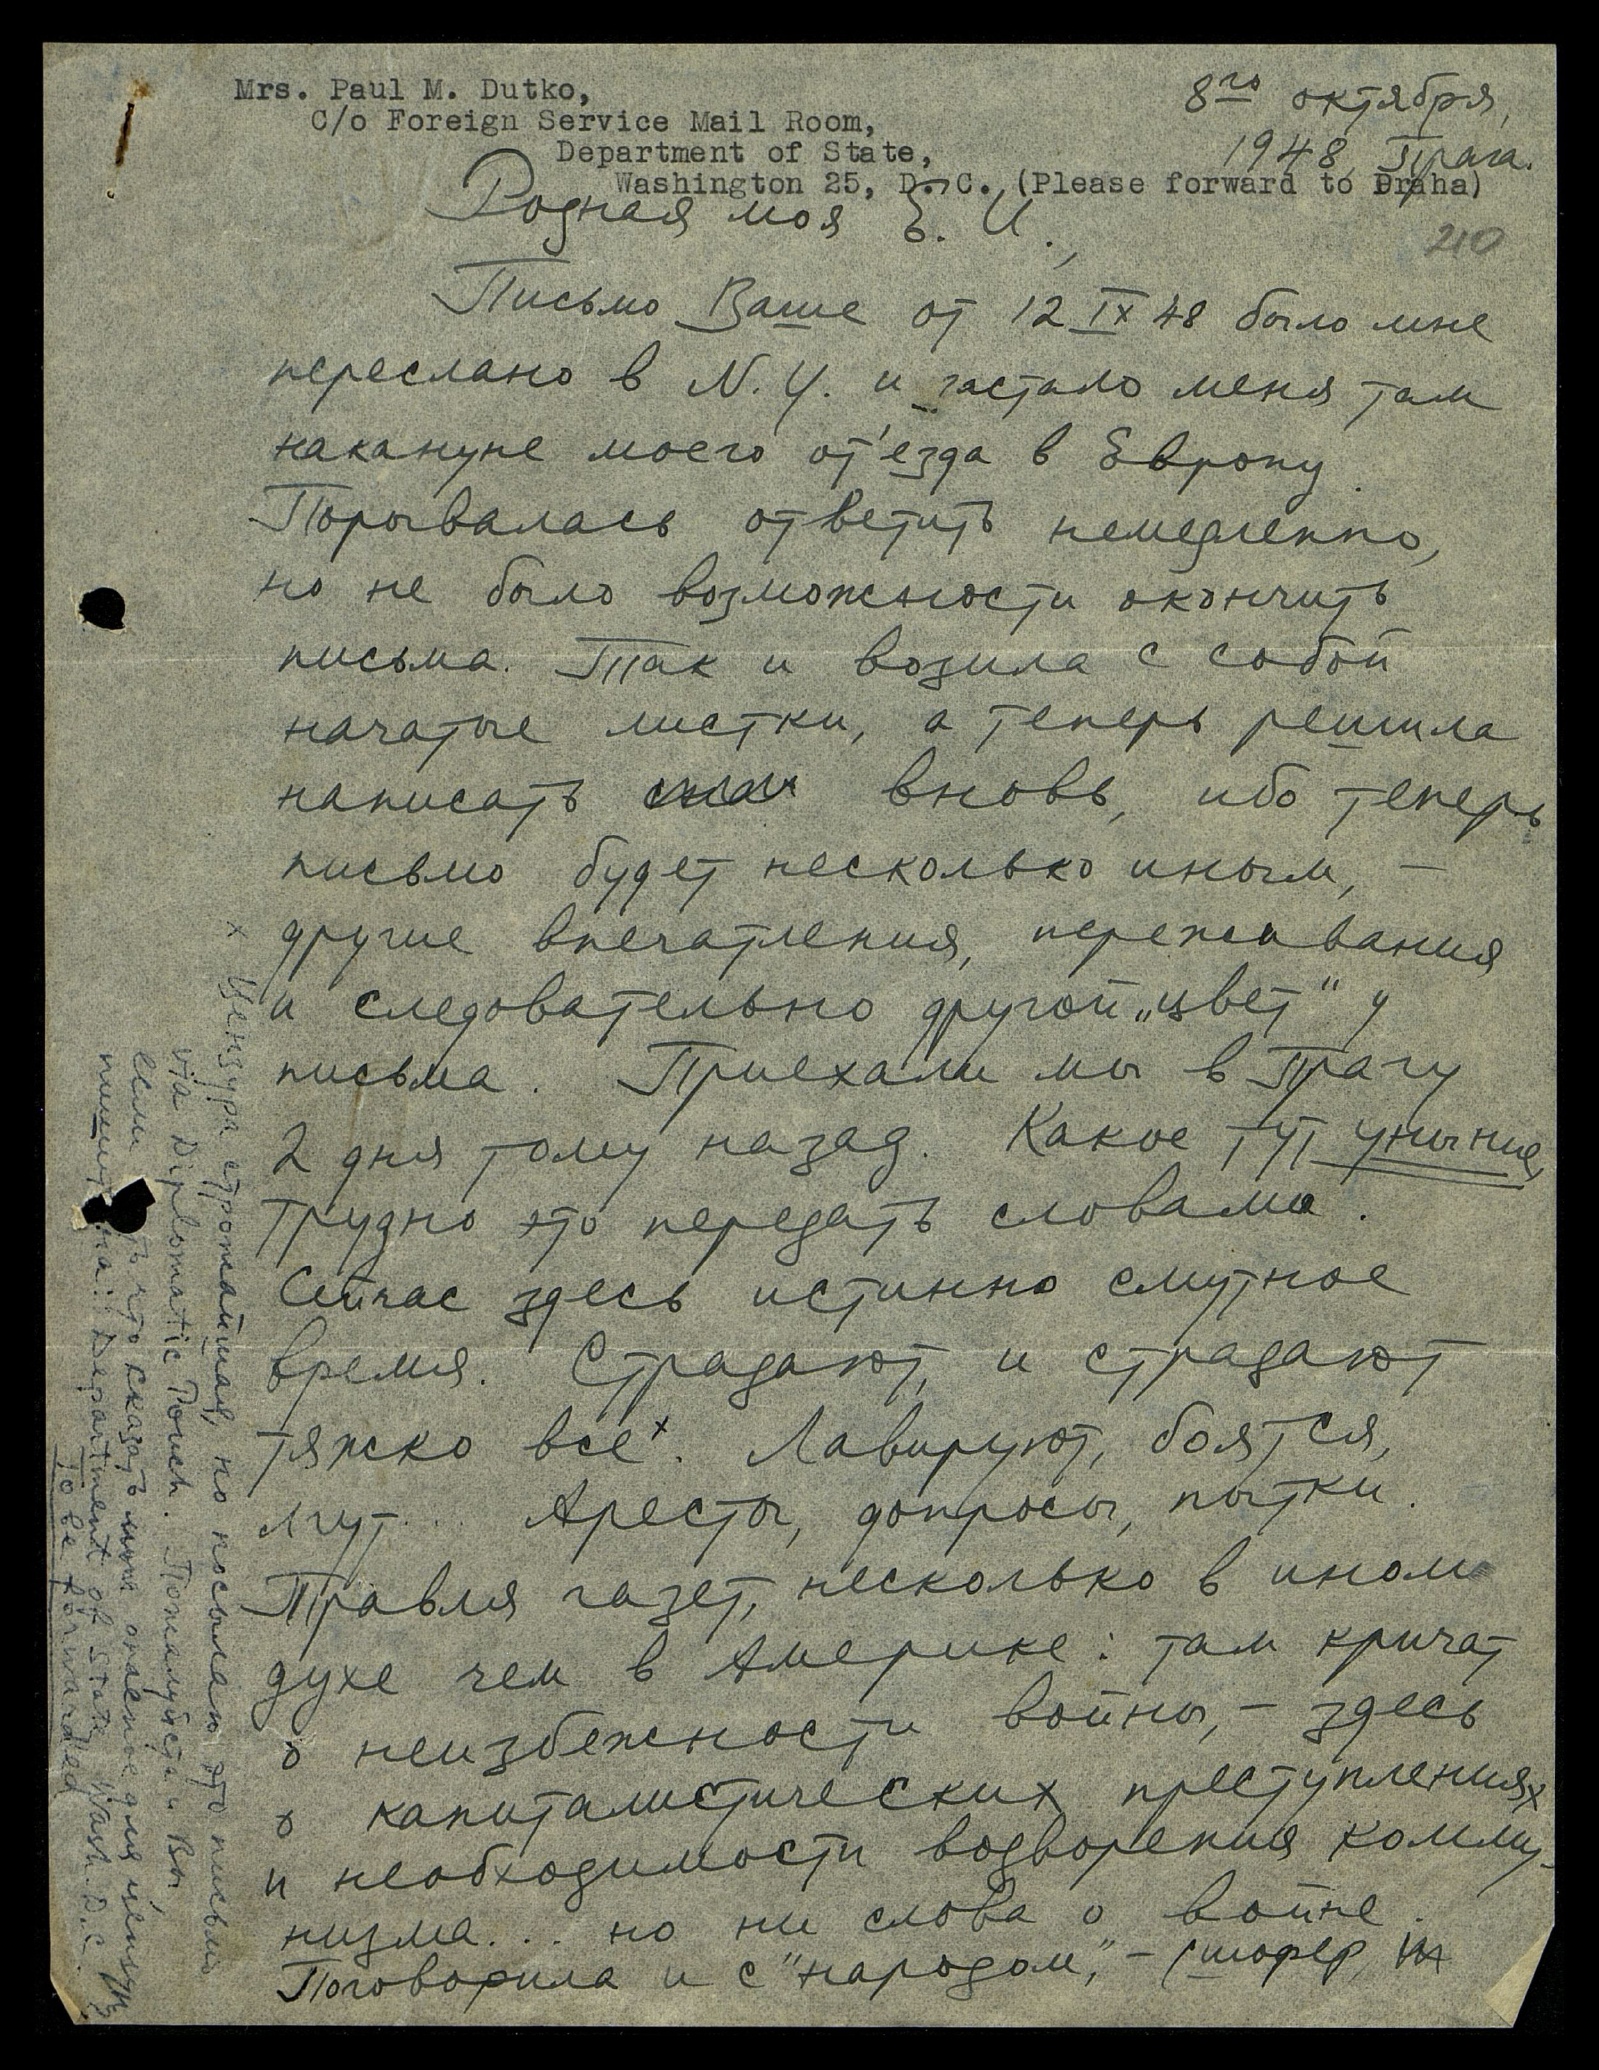 Mrs. Paul M. Dutko,
C/o Foreign Service Mail Room,
Department of State,
Washington 25, D. C. (Please forward to Praha)
8го октября,
1948, Прага.
210
Родная моя Е. И.,
Письмо Ваше от 12 IX 48 было мне
переслано в N.Y. и застало меня там
накануне моего от'езда в Европу.
Порывалась ответить немедленно,
но не было возможности окончить
письма. Так и возила с собой
начатые листки, а теперь решила
написать вновь, ибо теперь
письмо будет несколько иным, –
другие впечатления, переживания
и следовательно другой „цвет" у
письма. Приехали мы в Прагу
2 дня тому назад. Какое тут уныние,
трудно это передать словами.
Сейчас здесь истинно смутное
время. Страдают, и страдают
тяжко все x. Лавируют, боятся,
лгут... Аресты, допросы, пытки.
Травля газет, несколько в ином
духе чем в Америке: там кричат
о неизбежности войны, – здесь
о капиталистических преступлениях
и необходимости водворения комму-
низма... но ни слова о войне.
Поговорила и с "народом", – (шофер,
x Цензура строжайшая, но посылаю это письмо
via Diplomatic Pouch. Пожалуйста и Вы,
если что сказать мне опасное для цензуры
пишите на: Department of State Wash. D.C.
to be forwarded